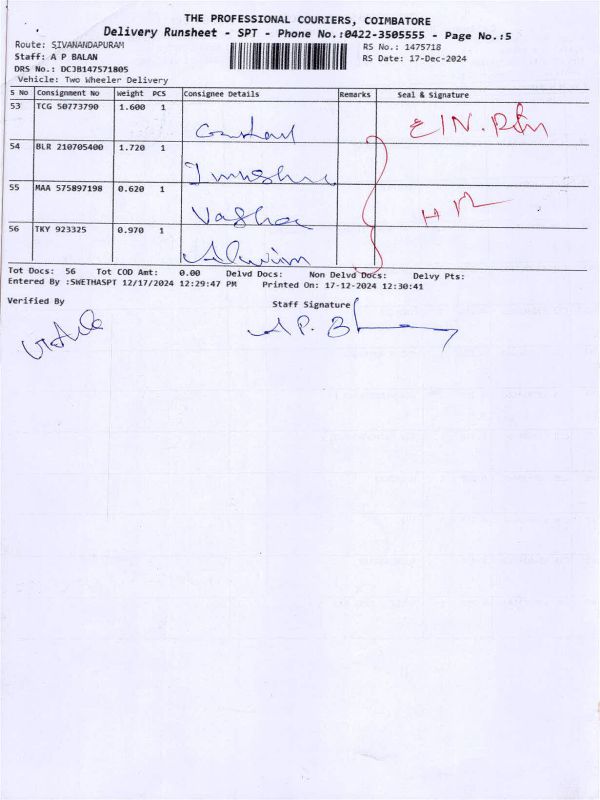 THE PROFESSIONAL COURIERS, COIMBATORE
Delivery Runsheet - SPT - Phone No.:0422-3505555 - Page No.:5
Route: SIVANANDAPURAM
RS No.: 1475718
Staff: A P BALAN
RS Date: 17-Dec-2024
DRS No.: DCJB147571805
Vehicle: Two Wheeler Delivery
S No Consignment No Weight PCS Consignee Details Remarks Seal & Signature
53 TCG 50773790 1.600 1
54 BLR 210705400 1.720 1
55 MAA 575897198 0.620 1
56 TKY 923325 0.970 1
Tot Docs: 56 Tot COD Amt: 0.00 Delvd Docs: Non Delvd Docs: Delvy Pts:
Entered By :SWETHASPT 12/17/2024 12:29:47 PM Printed On: 17-12-2024 12:30:41
Verified By
Staff Signature
A P. B